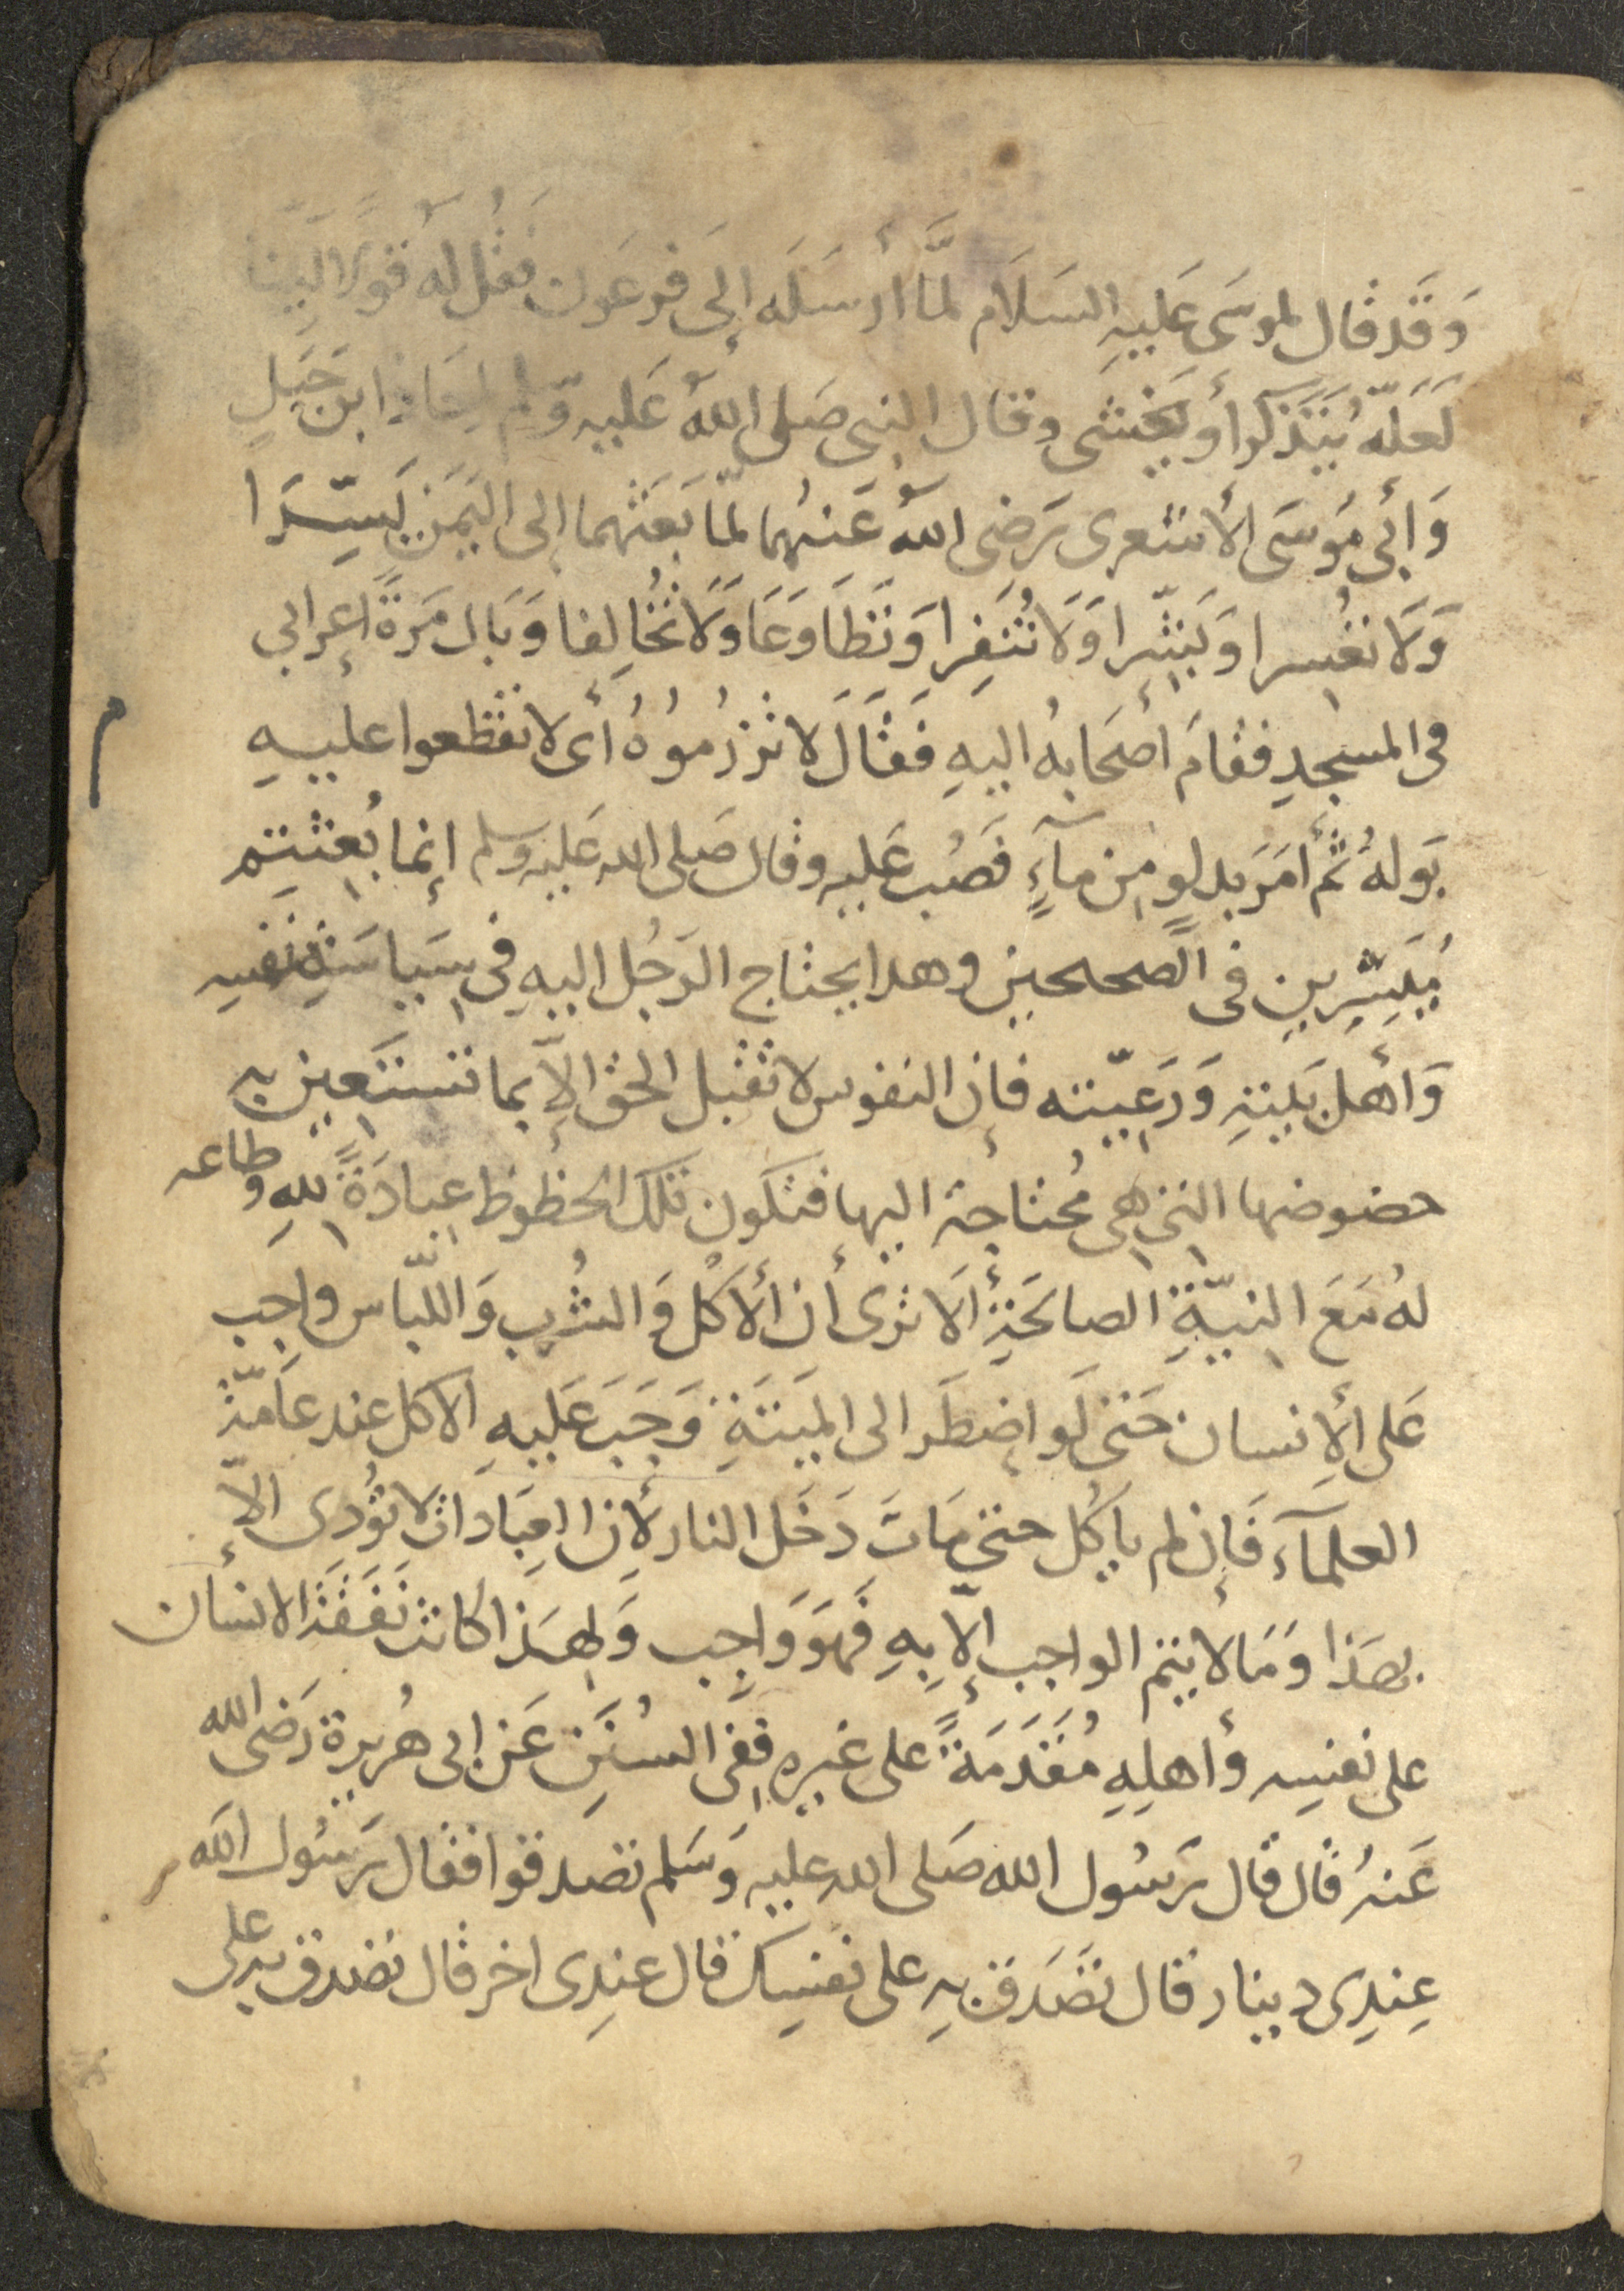 وَقَد قال لموسَى عَلَيهِ السَلَام لمَّا أرسَلَه إلَى فرعَون فقُل لهُ قَولاً لَيِّنا
لَعَلّهُ يَتَذَكّرأويَخشى وقال النبى صَلى اللهُ عَليه وّسلم لمعَاذ ابن جَبَلٍ
وَأبى مُوسَى الأشعرى رَضى اللهُ عَنهُما لمّا بَعَثهما إلى اليَمَن يَسّرَا
وَلَا تعُسرا وَبَشّرا وَلَا تُنَفِرا وَتَطَاوَعَا وَلَا تُخَالِفا وَبَال مَرةً إعرابي
فى المسجدِ فقامَ أصحَابهُ اليهِ فَقَالَ لا تزرمُوُهُ أى لا تقطعوا عليهِ
بَولهُ ثم أمَرَ بدلو مِن مآءٍ فَصُب عَليه وقال صَلى الله عَليه وسلم إنما بُعثتِم
مُيَسِّرين فى الصحيحين وهدا يحتاج الرَجُل اليهِ فى سِياسَةِ نفسِه
وَأهل بَيتهِ وَرَعِيّته فإن النفوس لا تقبل الحق إلّا بما تستَعِين به
حضوضها التى هِى مُحتاجة اليها فتكون تلك الحظوظ عِبادَةً للهِ وطاعه
لهُ مَعَ النِيّةِ الصالحَةِ ألَا ترى أن ألأكُل وَالشُرب وَاللّباس واجب
عَلى ألإنسان حَتى لَو إضطَر الى الميَتَةِ وَجَبَ عَليهِ الاكل عند عَامّة
العلمآء فَإن لم ياكُل حتى مَاتَ دَخَل النار لأن العِبَادات لا تؤُدى إلّا
بهَذا وَمَا لا يتم الواجب إلّا بِهِ فَهوَ وَاجِب وَلهَذا كانت نَفَقَة الانسان
على نفسِه وأهلِهِ مُقَدَمَةً على غيره ففِى السُنَن عَن ابى هُريرة رَضى الله
عَنهُ قال قال رَسُول الله صَلى الله عليه وَسَلم تصدقوا فقال رَسُول الله
عِندِى دينار قال تصَدَق بهِ على نفسِك قال عندِى اخر قال تصدق به على